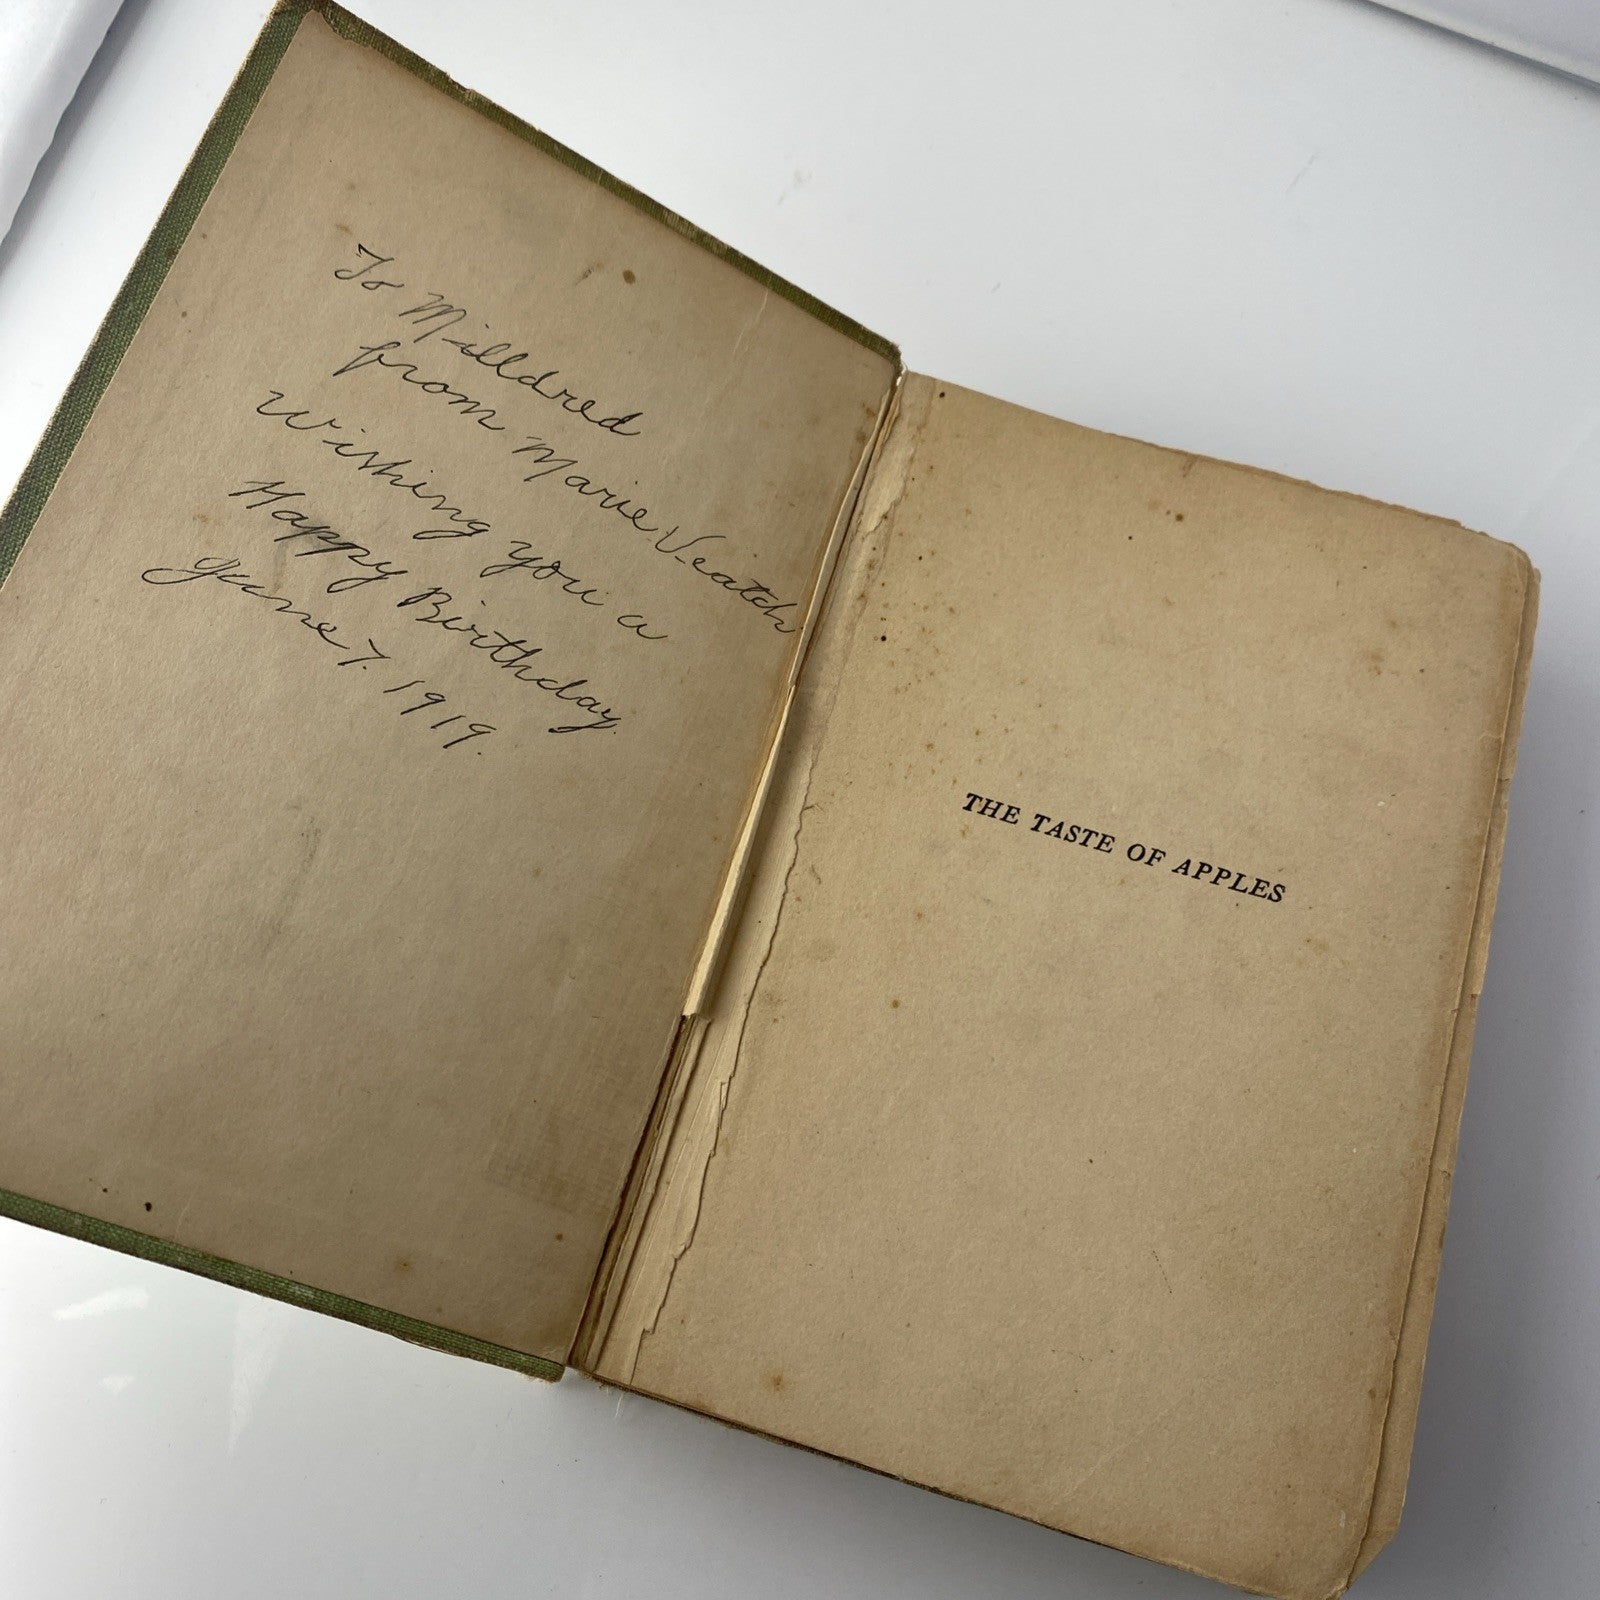 To Milldred
from Marie Veatch
Wishing you a
Happy Birthday.
June 7. 1919.
THE TASTE OF APPLES